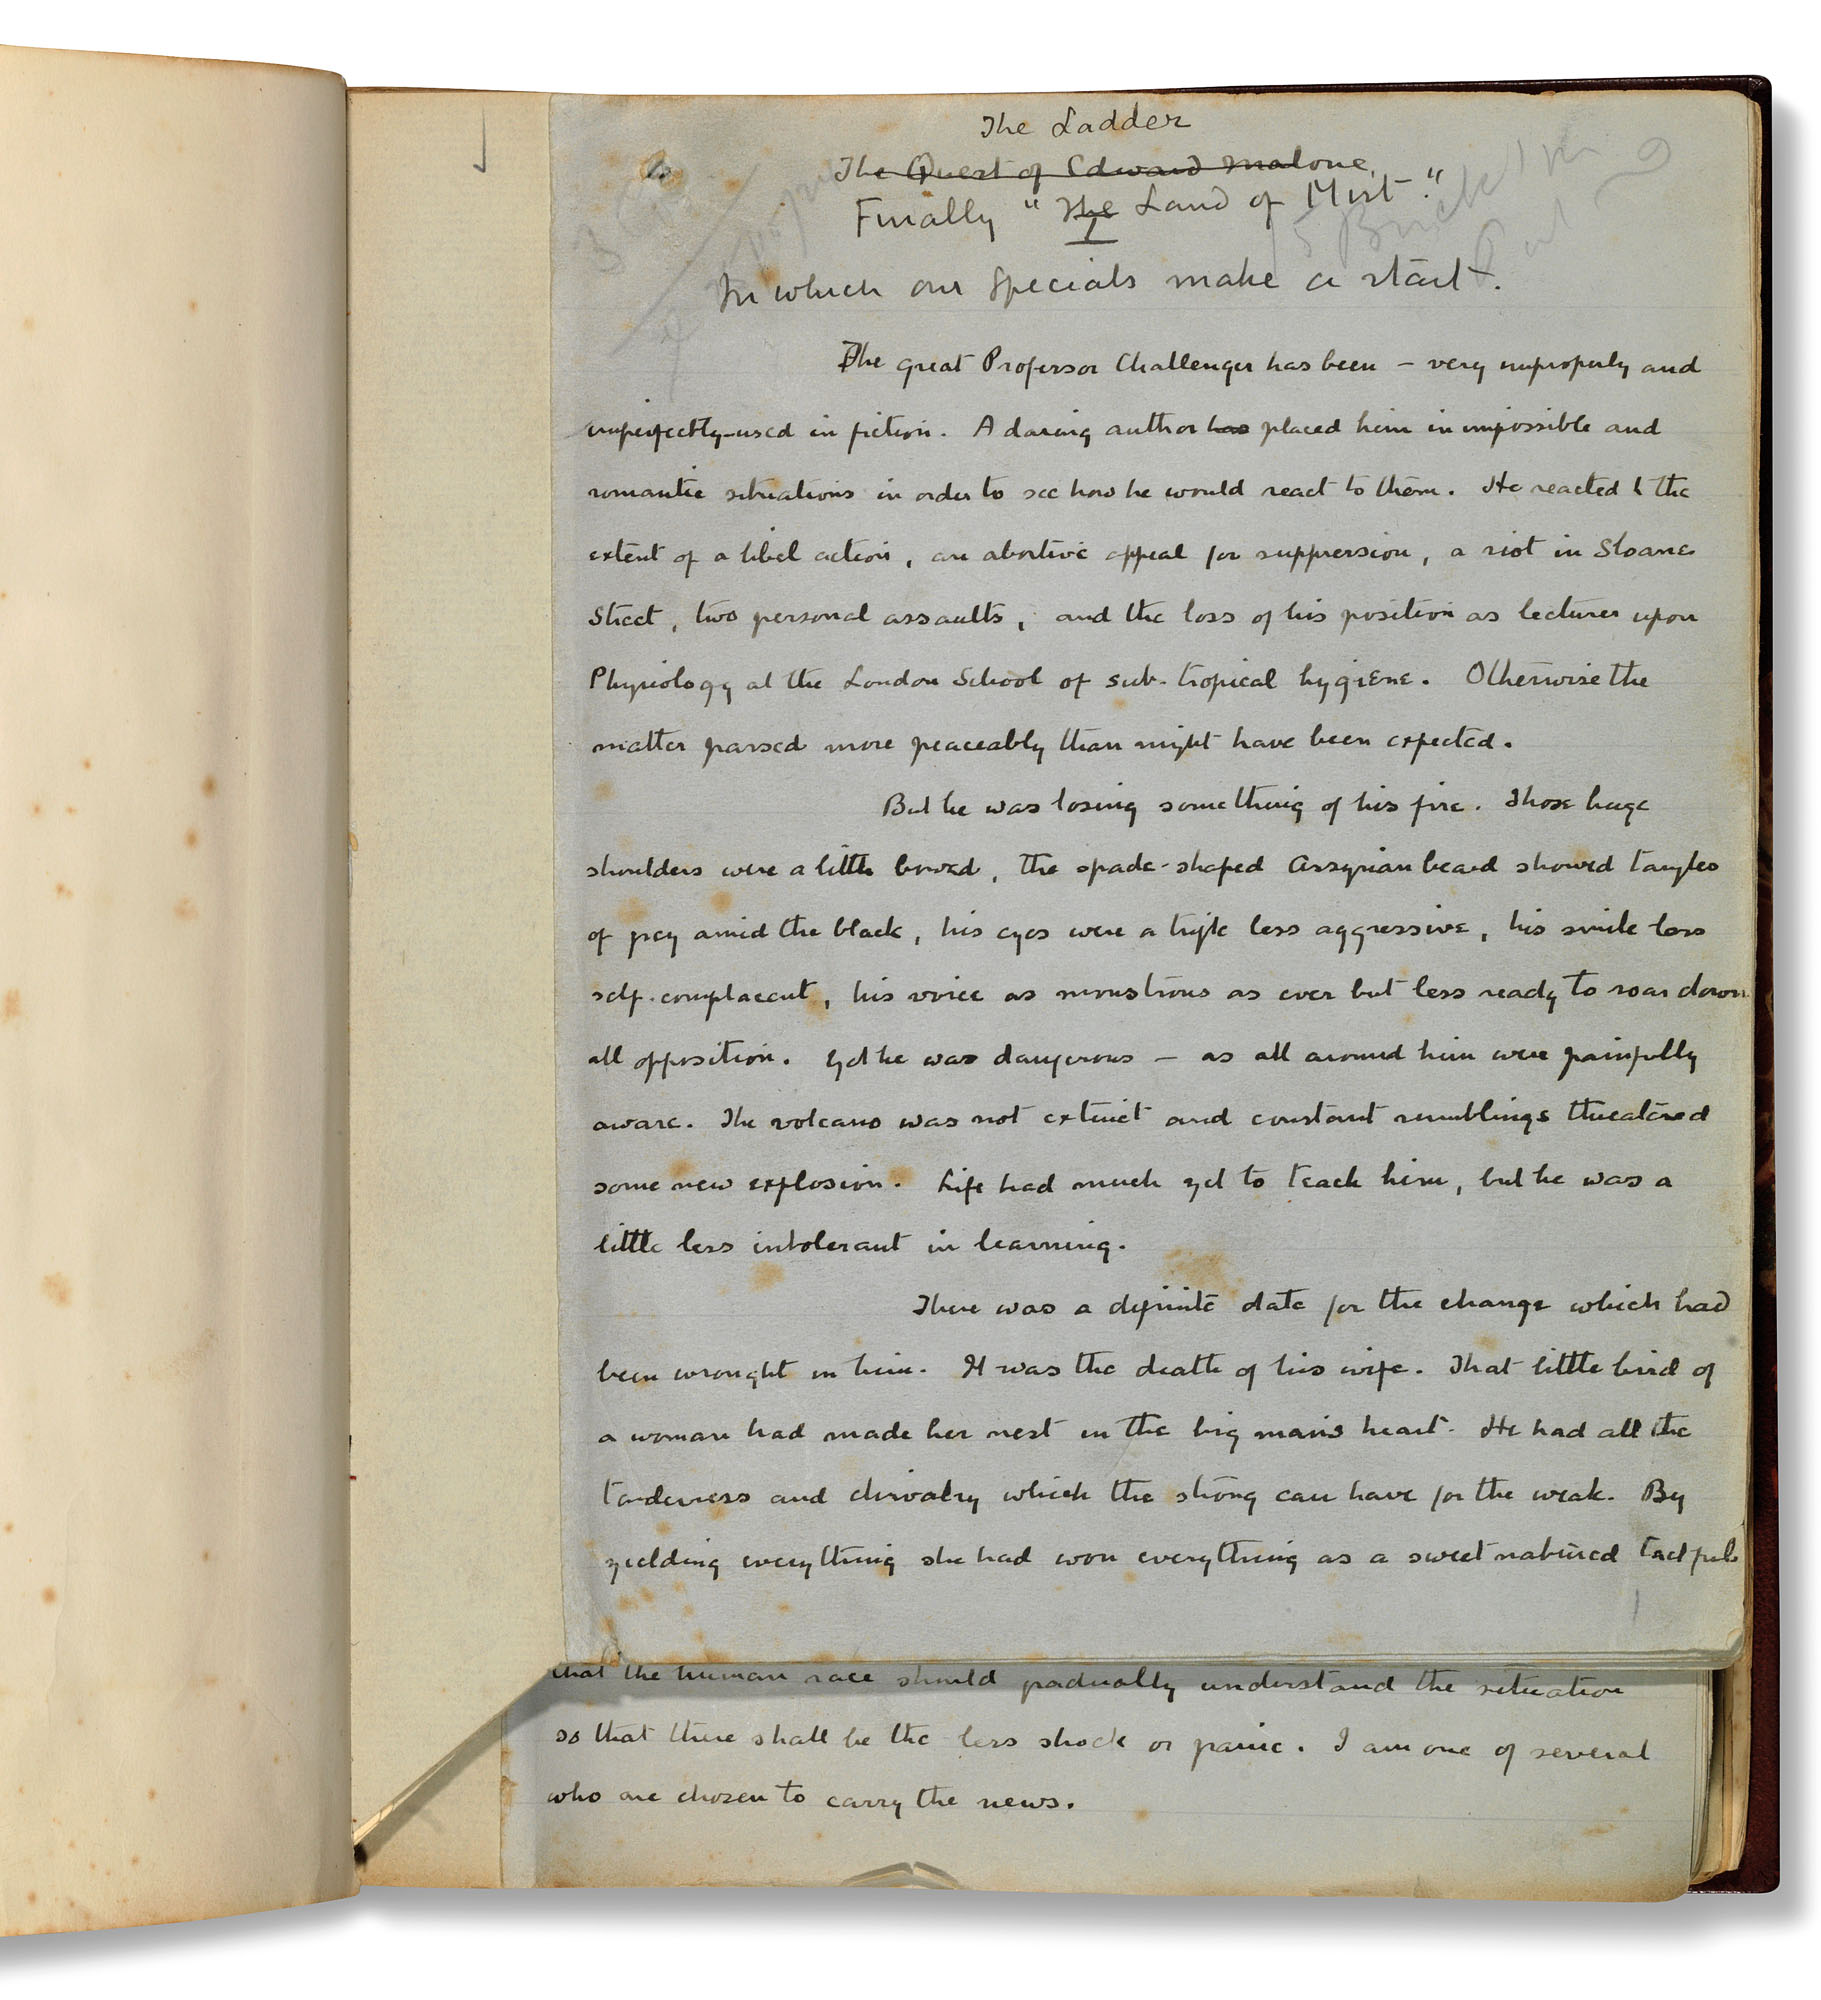 The Ladder
The Quest of Edward Malone.
Finally "The Land of Mist."
I
In which our Specials make a start.
The great Professor Challenger has been – very improperly and
imperfectly – used in fiction. A daring author has placed him in impossible and
romantic situations in order to see how he would react to them. He reacted to the
extent of a libel action, an abortive appeal for suppression, a riot in Sloane
Street, two personal assaults, and the loss of his position as lecturer upon
Physiology at the London School of sub-tropical hygiene. Otherwise the
matter passed more peaceably than might have been expected.
But he was losing something of his fire. Those huge
shoulders were a little bowed, the spade-shaped Assyrian beard showed tangles
of grey amid the black, his eyes were a trifle less aggressive, his smile less
self-complacent, his voice as monstrous as ever but less ready to roar down
all opposition. Yet he was dangerous – as all around him were painfully
aware. The volcano was not extinct and constant rumblings threatened
some new explosion. Life had much yet to teach him, but he was a
little less intolerant in learning.
There was a definite date for the change which had
been wrought in him. It was the death of his wife. That little bird of
a woman had made her nest in the big man's heart. He had all the
tenderness and chivalry which the strong can have for the weak. By
yielding everything she had won everything as a sweet natured tactful
1
that the human race should gradually understand the situation
so that there shall be the less shock or panic. I am one of several
who are chosen to carry the news.